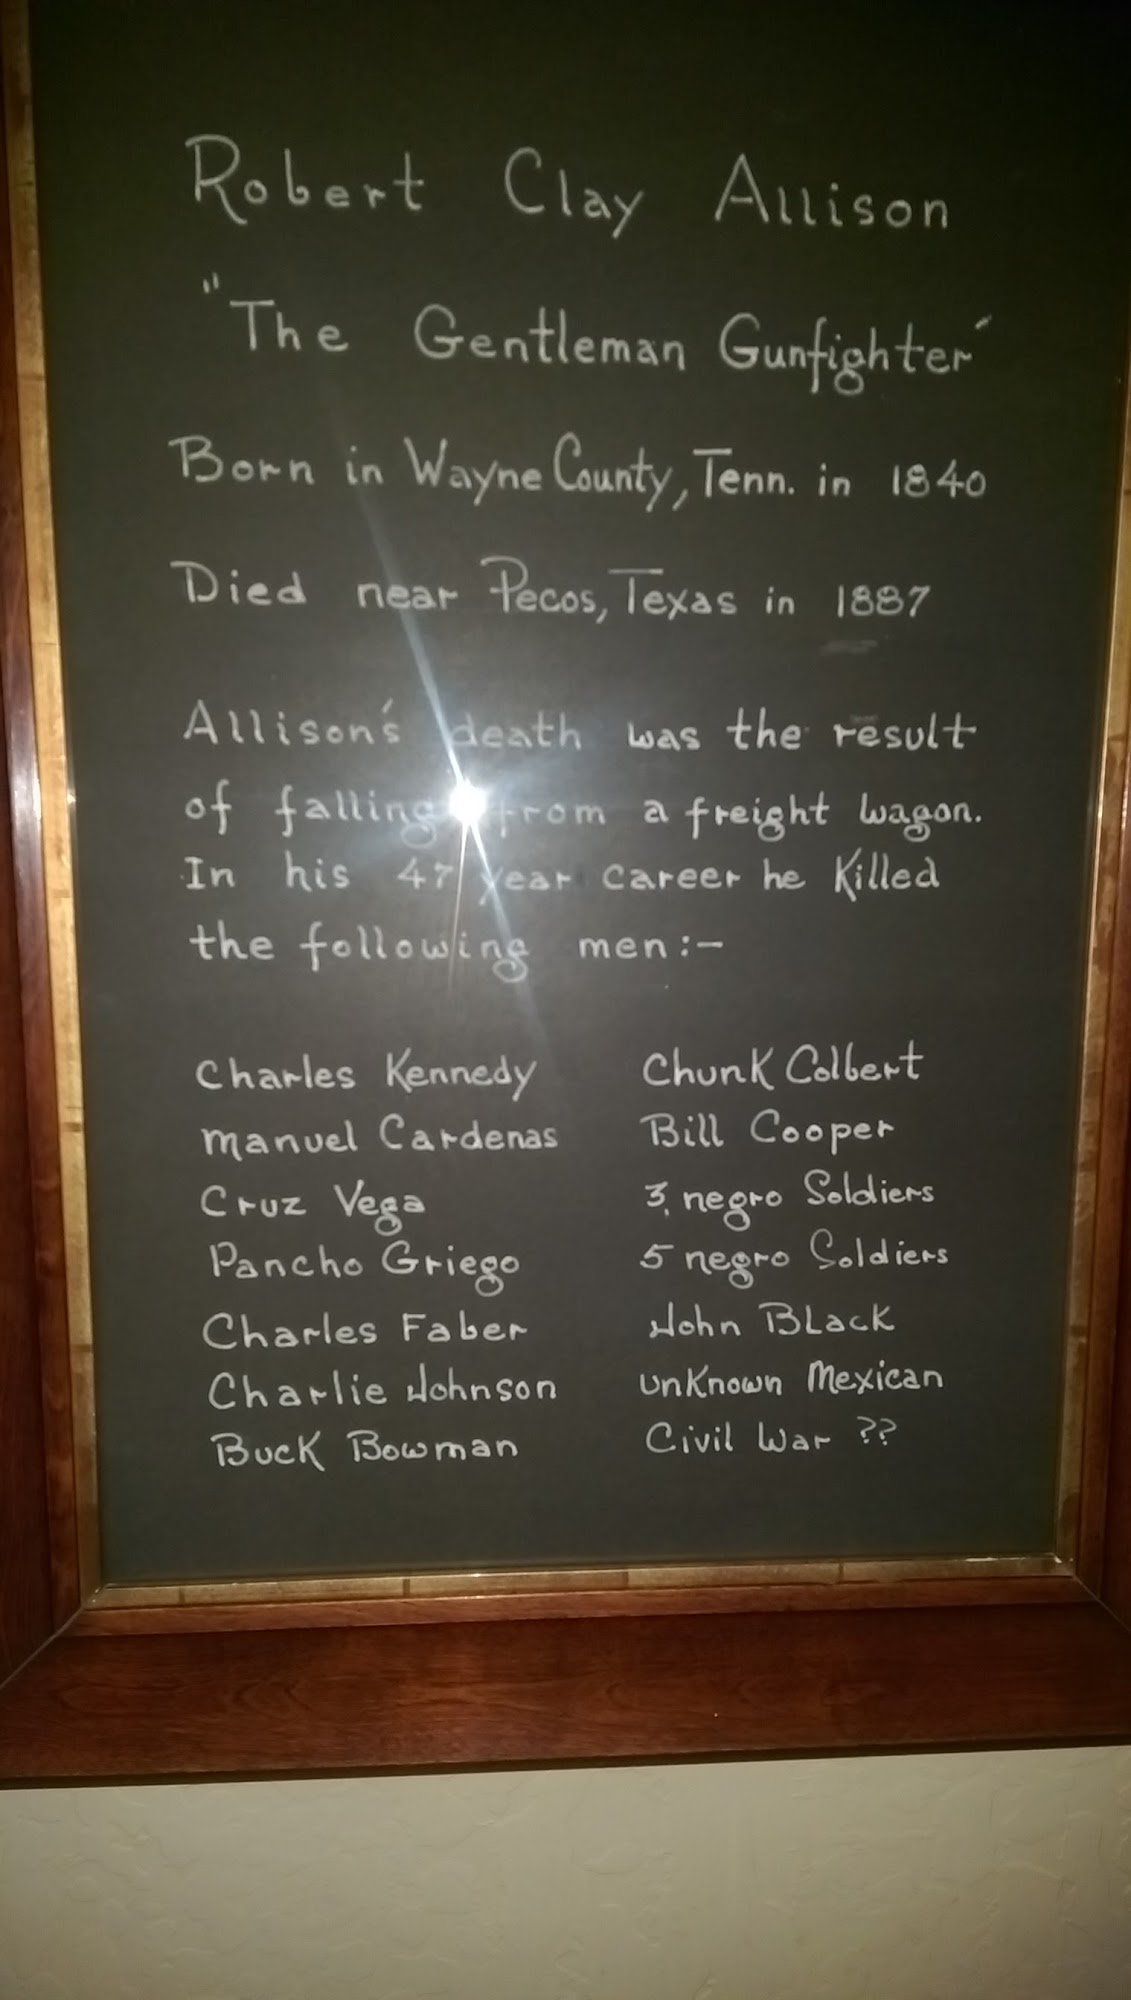 Robert Clay Allison
"The Gentleman Gunfighter"
Born in Wayne County, Tenn. in 1840
Died near Pecos, Texas in 1887
Allison's death was the result
of falling from a freight wagon.
In his 47 year career he Killed
the following men:-
Charles Kennedy
Manuel Cardenas
Cruz Vega
Pancho Griego
Charles Faber
Charlie Johnson
Buck Bowman
Chunk Colbert
Bill Cooper
3, negro Soldiers
5 negro Soldiers
John Black
unKnown Mexican
Civil War ??